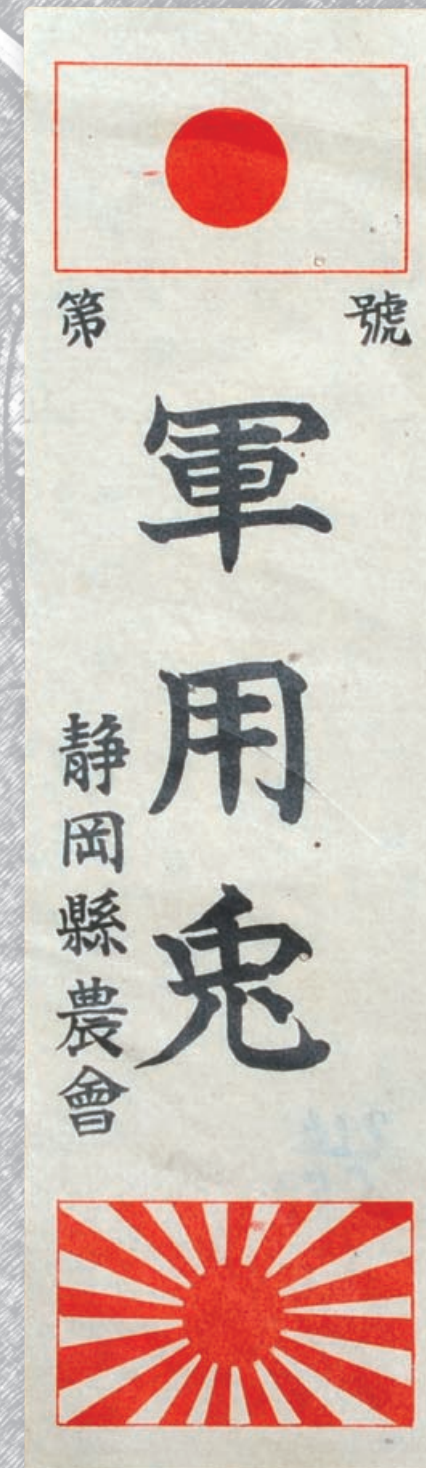 第 號
軍用兎
静岡縣農會